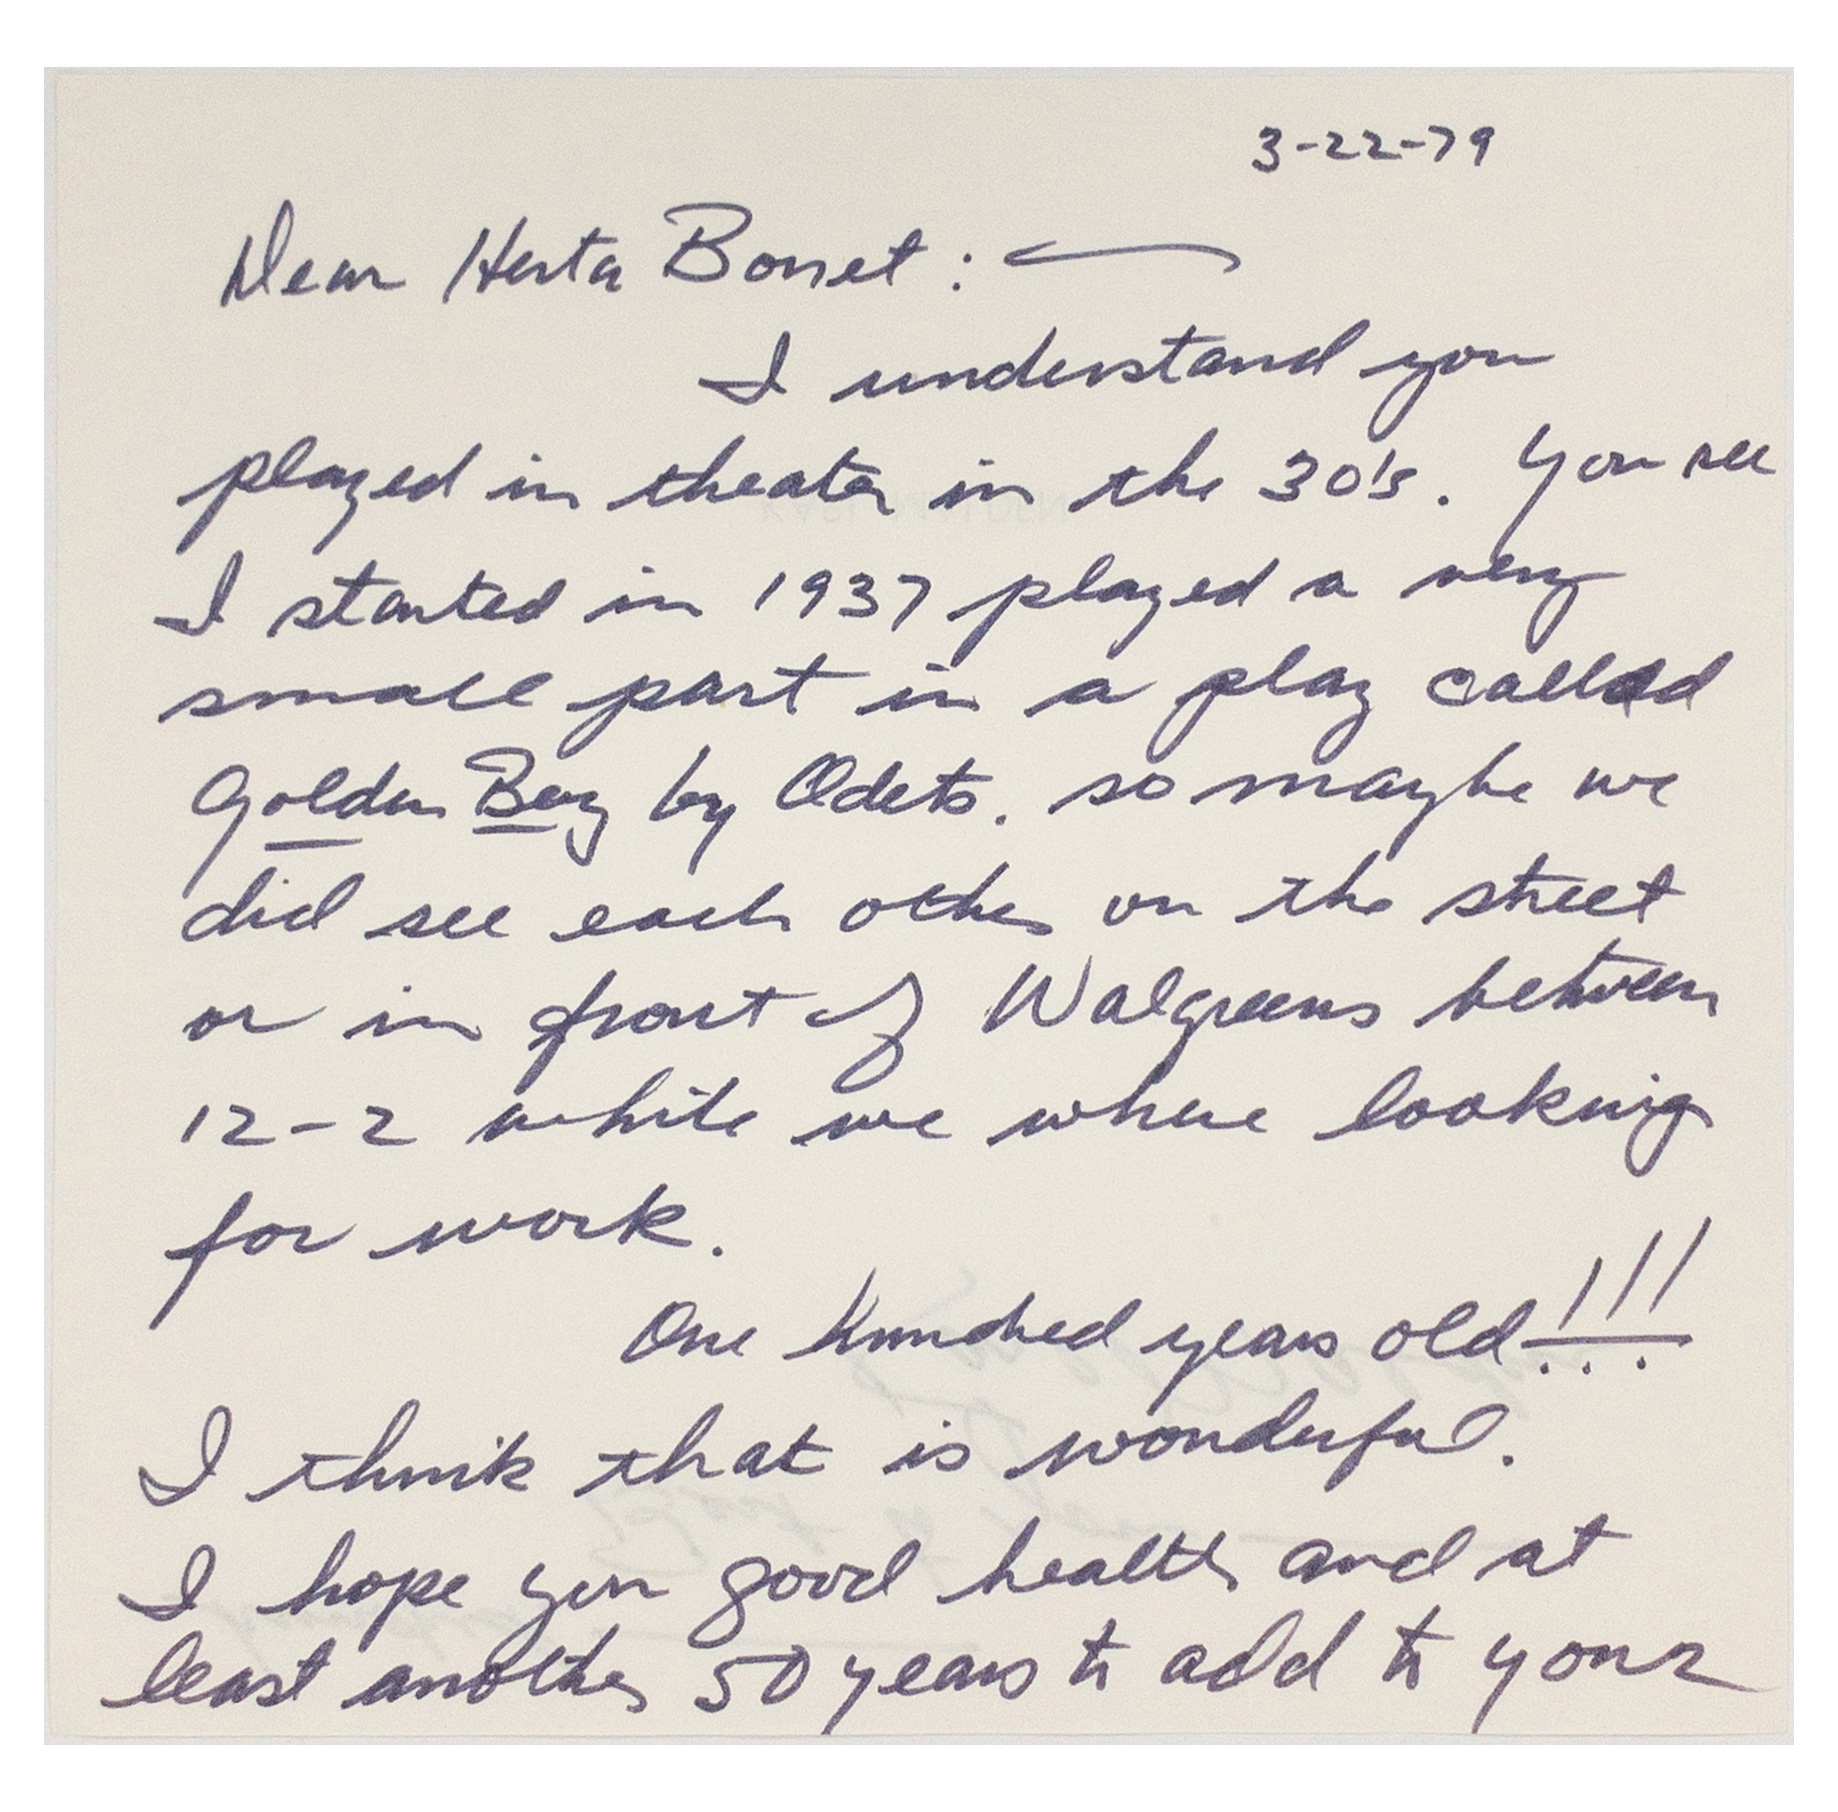 3-22-79
Dear Herta Bonet :
I understand you
played in theater in the 30's. You see
I started in 1937 played a very
small part in a play called
Golden Boy by Odets. so maybe we
did see each other on the street
or in front of Walgreens between
12-2 while we where looking
for work.
One Hundred years old!!!
I think that is wonderful.
I hope you good health and at
least another 50 years to add to your